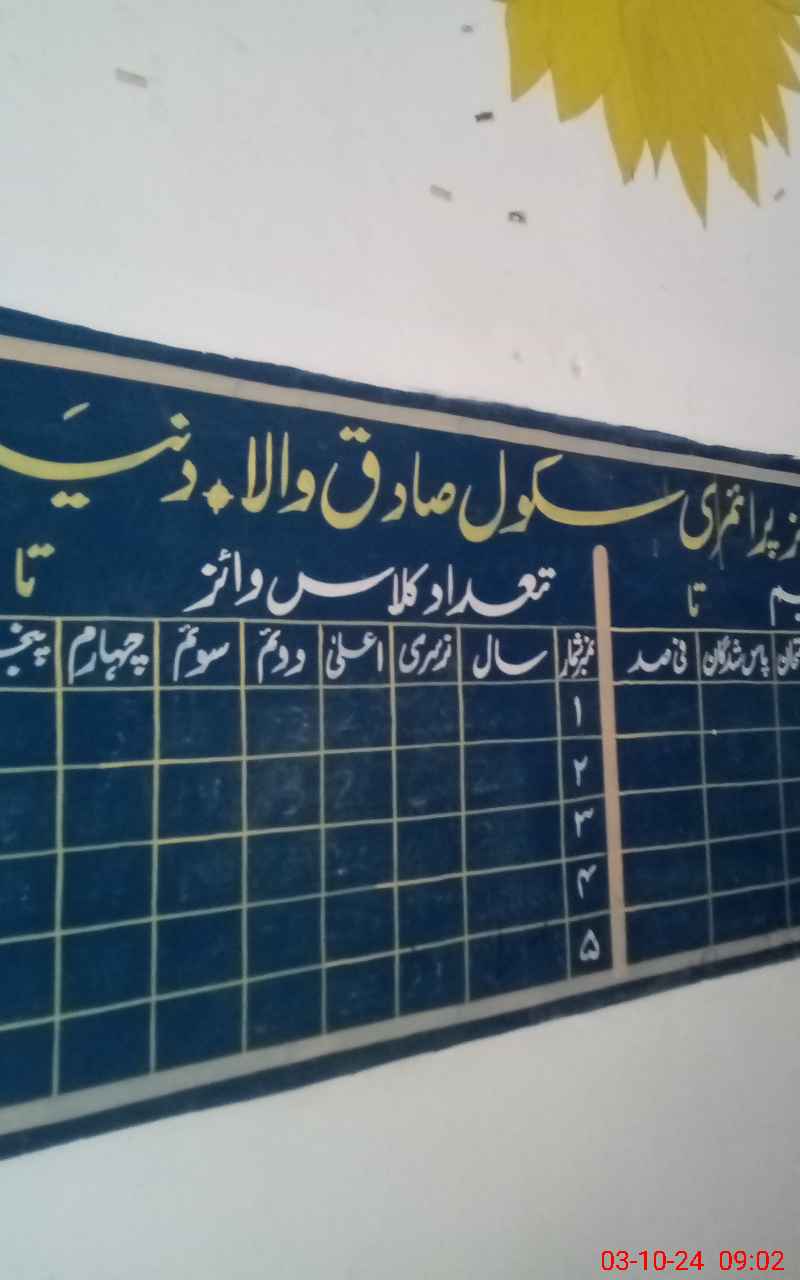 پرائمری سکول صادق والا۔ دنیا
تا تعداد کلاس وائز تا
پاس شدگان فی صد نمبر شمار سال نرسری اعلیٰ دوئم سوئم چہارم
۱
۲
۳
۴
۵
03-10-24 09:02